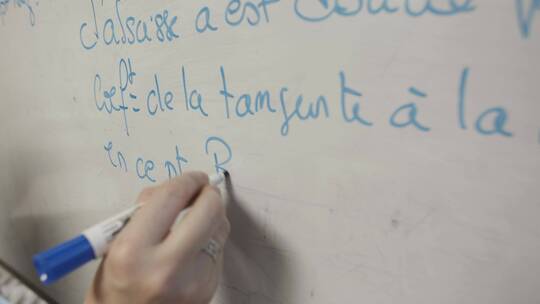 d'abscisse a est
coef^t de la tangente à la
en ce pt